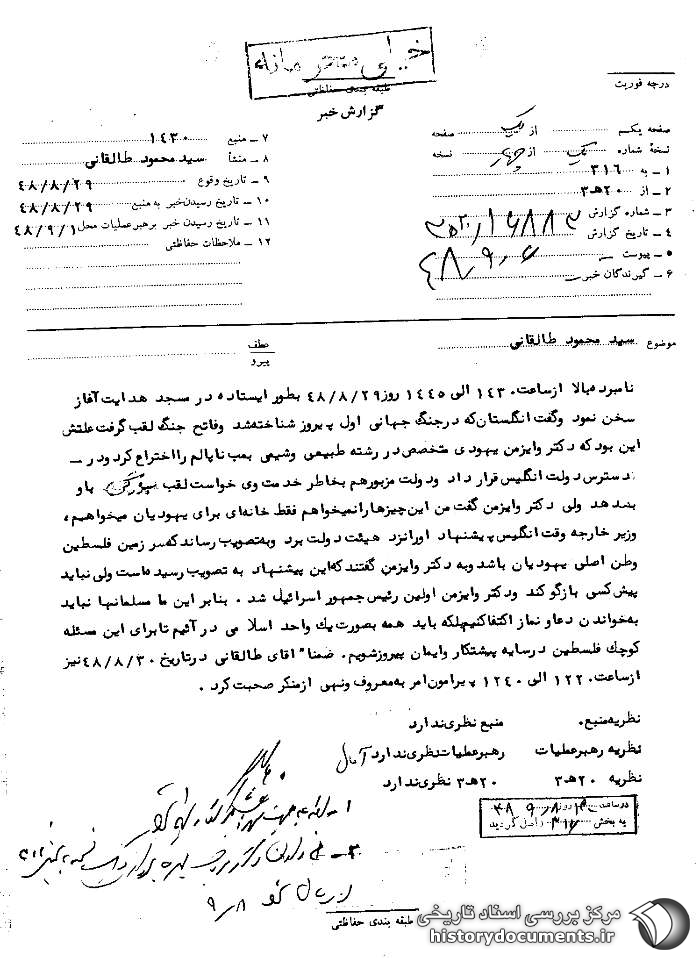 خیلی محرمانه
طبقه بندی حفاظتی
گزارش خبر
درجه فوریت
صفحه یکم از یک صفحه
نسخهٔ شماره یک از چهار نسخه
۱ - به ۳۱۶
۲ - از ۲۰هـ۳
۳ - شماره گزارش
۴ - تاریخ گزارش
۵ - پیوست
۶ - گیرندگان خبر
۷ - منبع ۱۴۳۰
۸ - منشأ سید محمود طالقانی
۹ - تاریخ وقوع ۴۸/۸/۲۹
۱۰ - تاریخ رسیدن خبر به منبع ۴۸/۸/۲۹
۱۱ - تاریخ رسیدن خبر برهبر عملیات محل ۴۸/۹/۱
۱۲ - ملاحظات حفاظتی
موضوع سید محمود طالقانی
عطف
پیرو
نامبرده بالا ازساعت ۱۴۳۰ الی ۱۴۴۵ روز ۴۸/۸/۲۹ بطور ایستاده در مسجد هدایت آغاز
سخن نمود وگفت انگلستان که درجنگ جهانی اول پیروز شناخته شد وفاتح جنگ لقب گرفت علتش
این بود که دکتر وایزمن یهودی متخصص در رشته طبیعی وشیمی بمب ناپالم را اختراع کرد ودر -
دسترس دولت انگلیس قرار داد ودولت مزبور هم بخاطر خدمت وی خواست لقب باو
بدهد ولی دکتر وایزمن گفت من این چیزها رانمیخواهم فقط خانه‌ای برای یهودیان میخواهیم،
وزیر خارجه وقت انگلیس پیشنهاد اورانزد هیئت دولت برد وبه تصویب رساند که سرزمین فلسطین
وطن اصلی یهودیان باشد وبه دکتر وایزمن گفتند که این پیشنهاد به تصویب رسیده است ولی نباید
پیش کسی بازگو کند ودکتر وایزمن اولین رئیس جمهور اسرائیل شد . بنابر این ما مسلمانها نباید
به خواندن دعا و نماز اکتفا کنیم بلکه باید همه بصورت یك واحد اسلامی در آئیم تا برای این مسئله
کوچك فلسطین درسایه پیشتکار وایمان پیروز شویم. ضمنا" آقای طالقانی درتاریخ ۴۸/۸/۳۰ نیز
ازساعت ۱۲۲۰ الی ۱۲۴۰ پیرامون امر به معروف ونهی از منکر صحبت کرد .
نظریه منبع. منبع نظری ندارد
نظریه رهبر عملیات رهبر عملیات نظری ندارد
نظریه ۲۰هـ۳ ۲۰هـ۳ نظری ندارد
در ساعت روز
به بخش ۳۱۶ واصل گردید
طبقه بندی حفاظتی
مرکز بررسی اسناد تاریخی
historydocuments.ir